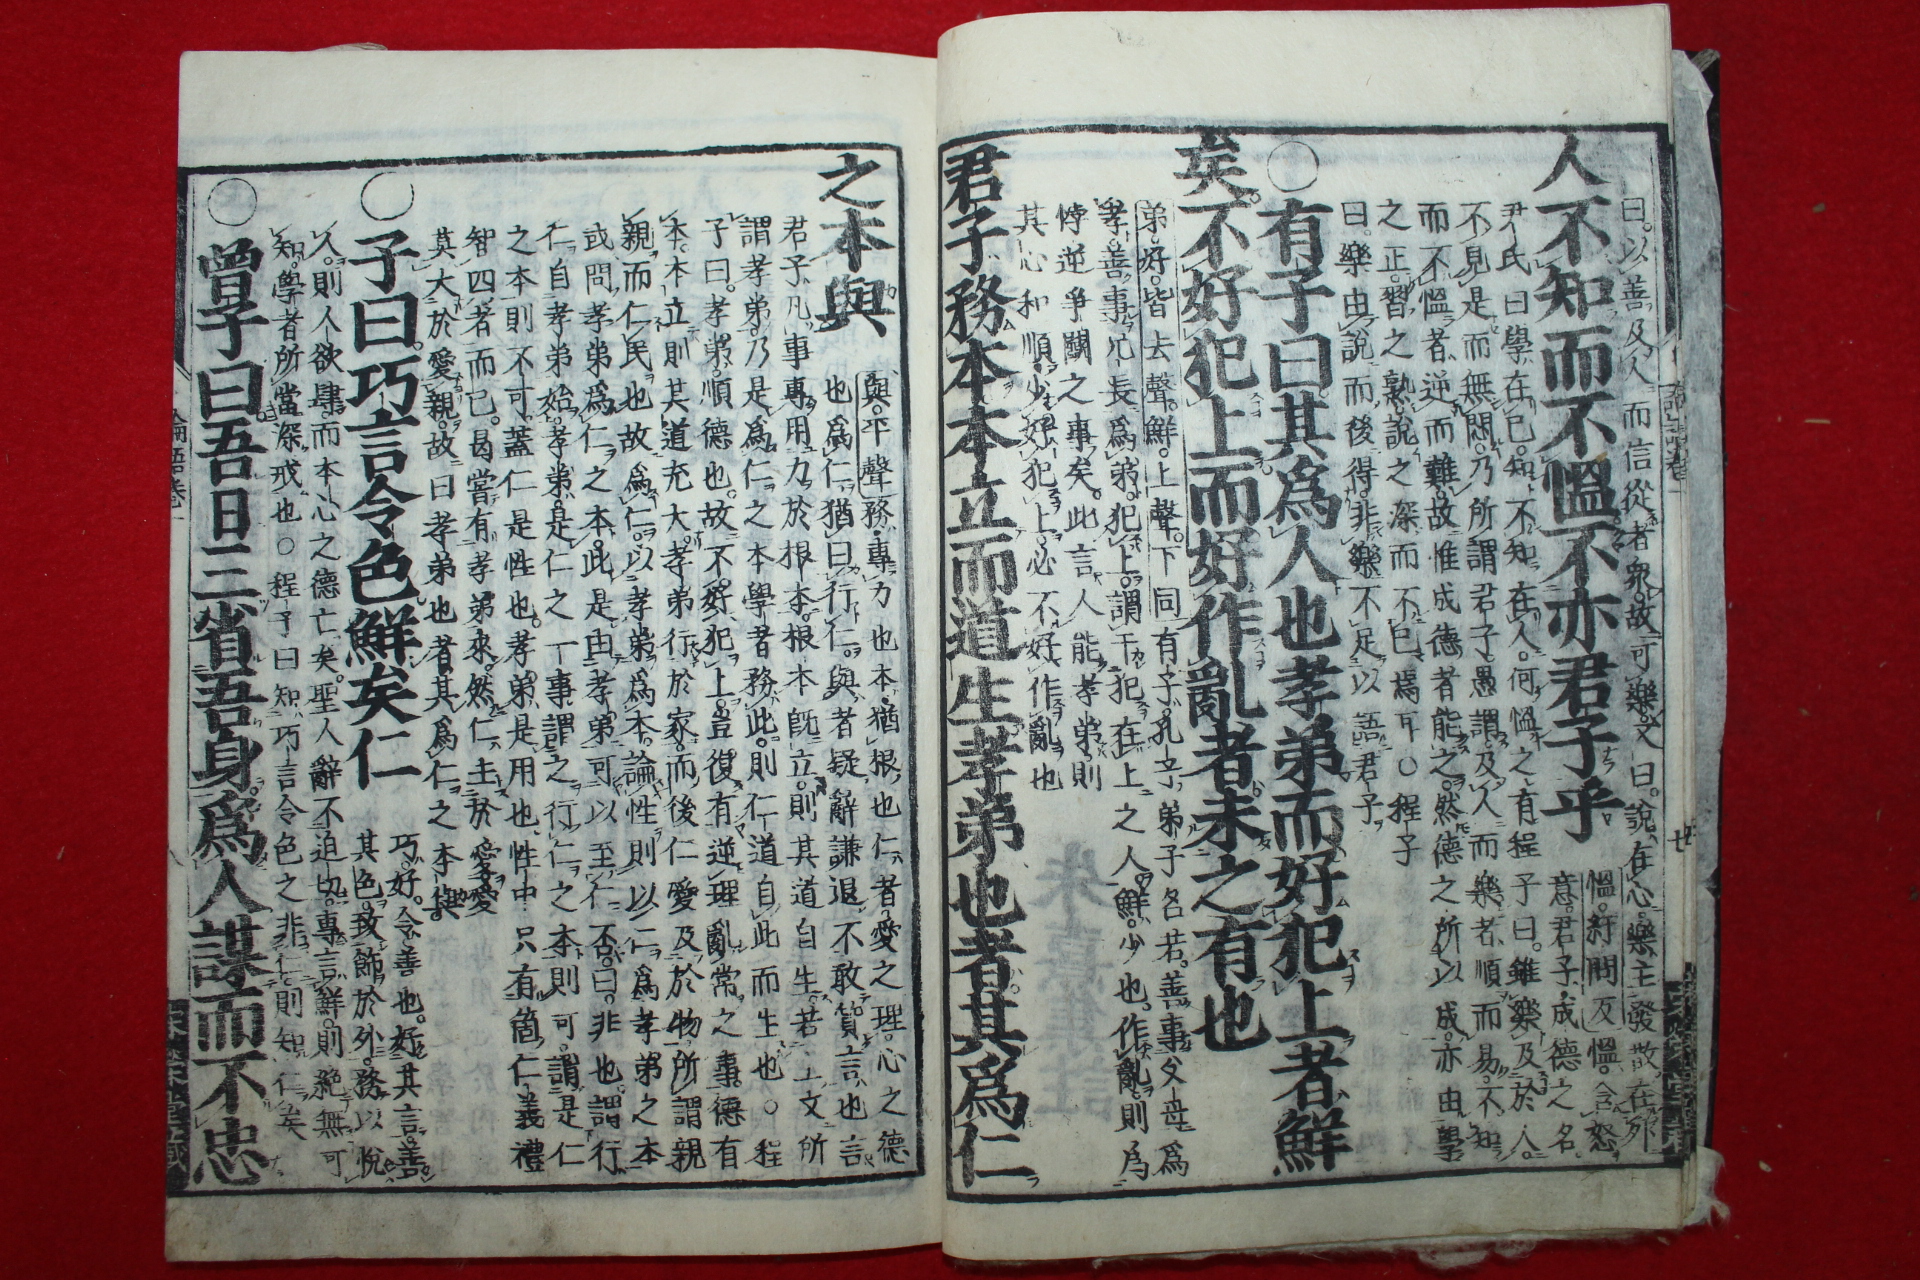 曰以善及人而信從者衆故可樂又曰說在心樂主發散在外
人不知而不慍不亦君子乎
慍紆問反慍含怒
意君子成德之名
尹氏曰學在己知不知在人何慍之有程子曰雖樂及於人
不見是而無悶乃所謂君子愚謂及人而樂者順而易不知
而不慍者逆而難故惟成德者能之然德之所以成亦由學
之正習之熟說之深而不已焉耳○程子
曰樂由說而後得非樂不足以語君子
○有子曰其為人也孝弟而好犯上者鮮
矣不好犯上而好作亂者未之有也
弟好皆去聲鮮上聲下同有子孔子弟子名若善事父母為
孝善事兄長為弟犯上謂干犯在上之人鮮少也作亂則為
悖逆爭鬪之事矣此言人能孝弟則
其心和順少好犯上必不好作亂也
君子務本本立而道生孝弟也者其為仁
之本與
與平聲務專力也本猶根也仁者愛之理心之德
也為仁猶曰行仁與者疑辭謙退不敢質言也言
君子凡事專用力於根本根本旣立則其道自生若上文所
謂孝弟乃是為仁之本學者務此則仁道自此而生也○程
子曰孝弟順德也故不好犯上豈復有逆理亂常之事德有
本本立則其道充大孝弟行於家而後仁愛及於物所謂親
親而仁民也故為仁以孝弟為本論性則以仁為孝弟之本
或問孝弟為仁之本此是由孝弟可以至仁否曰非也謂行
仁自孝弟始孝弟是仁之一事謂之行仁之本則可謂是仁
之本則不可蓋仁是性也孝弟是用也性中只有箇仁義禮
智四者而已曷嘗有孝弟來然仁主於愛愛
莫大於愛親故曰孝弟也者其為仁之本與
○子曰巧言令色鮮矣仁
巧好令善也好其言善
其色致飾於外務以悅
人則人欲肆而本心之德亡矣聖人辭不迫切專言鮮則絕無可
知學者所當深戒也○程子曰知巧言令色之非仁則知仁矣
○曾子曰吾日三省吾身為人謀而不忠
論語卷一